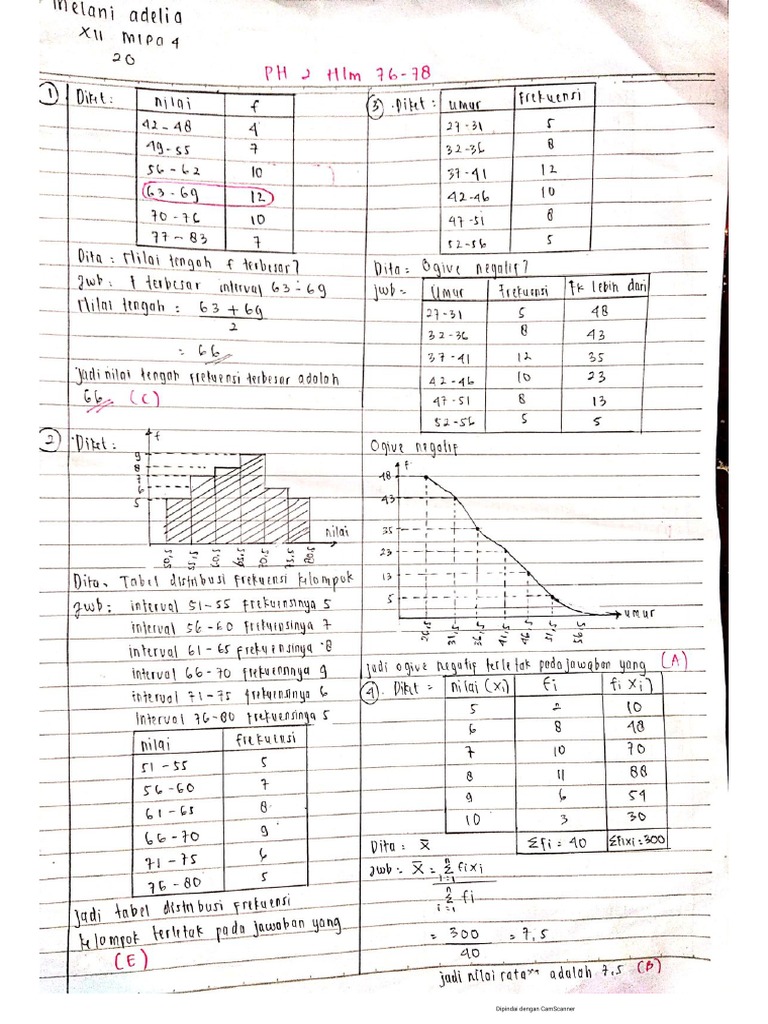 Melani adelia
XII MIPA 4
20
PH 2 Hlm 76-78
① Diket:
nilai f
42-48 4
49-55 7
56-62 10
63-69 12
70-76 10
77-83 7
Dita: Nilai tengah f terbesar?
Jwb: f terbesar interval 63-69
Nilai tengah: 63 + 69
2
= 66
Jadi nilai tengah frekuensi terbesar adalah
66 (C)
② Diket:
f
9
8
7
6
5
nilai
50,5 55,5 60,5 65,5 70,5 75,5 80,5
Dita. Tabel distribusi frekuensi kelompok
Jwb: interval 51-55 frekuensinya 5
interval 56-60 frekuensinya 7
interval 61-65 frekuensinya 8
interval 66-70 frekuensinya 9
interval 71-75 frekuensinya 6
Interval 76-80 frekuensinya 5
nilai frekuensi
51-55 5
56-60 7
61-65 8
66-70 9
71-75 6
76-80 5
Jadi tabel distribusi frekuensi
kelompok terletak pada jawaban yang
(E)
③ Diket:
Umur Frekuensi
27-31 5
32-36 8
37-41 12
42-46 10
47-51 8
52-56 5
Dita: Ogive negatif?
Jwb=
Umur Frekuensi fk lebih dari
27-31 5 48
32-36 8 43
37-41 12 35
42-46 10 23
47-51 8 13
52-56 5 5
Ogive negatif
f
48
43
35
23
13
5
umur
26,5 31,5 36,5 41,5 46,5 51,5 56,5
Jadi ogive negatif terletak pada jawaban yang (A)
④ Diket =
nilai (xi) fi fi xi
5 2 10
6 8 48
7 10 70
8 11 88
9 6 54
10 3 30
Σfi = 40 Σfixi=300
Dita: x̄
Jwb: x̄ = n Σ i=1 fixi
n Σ i=1 fi
= 300 = 7,5
40
Jadi nilai rata²nya adalah 7,5 (B)
Dipindai dengan CamScanner